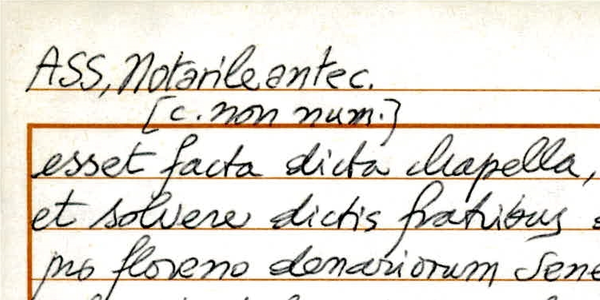 ASS, Notarile antec.
[c. non num.]
esset facta dicta chapella,
et solvere dictis fratribus
pro floreno denariorum Sene